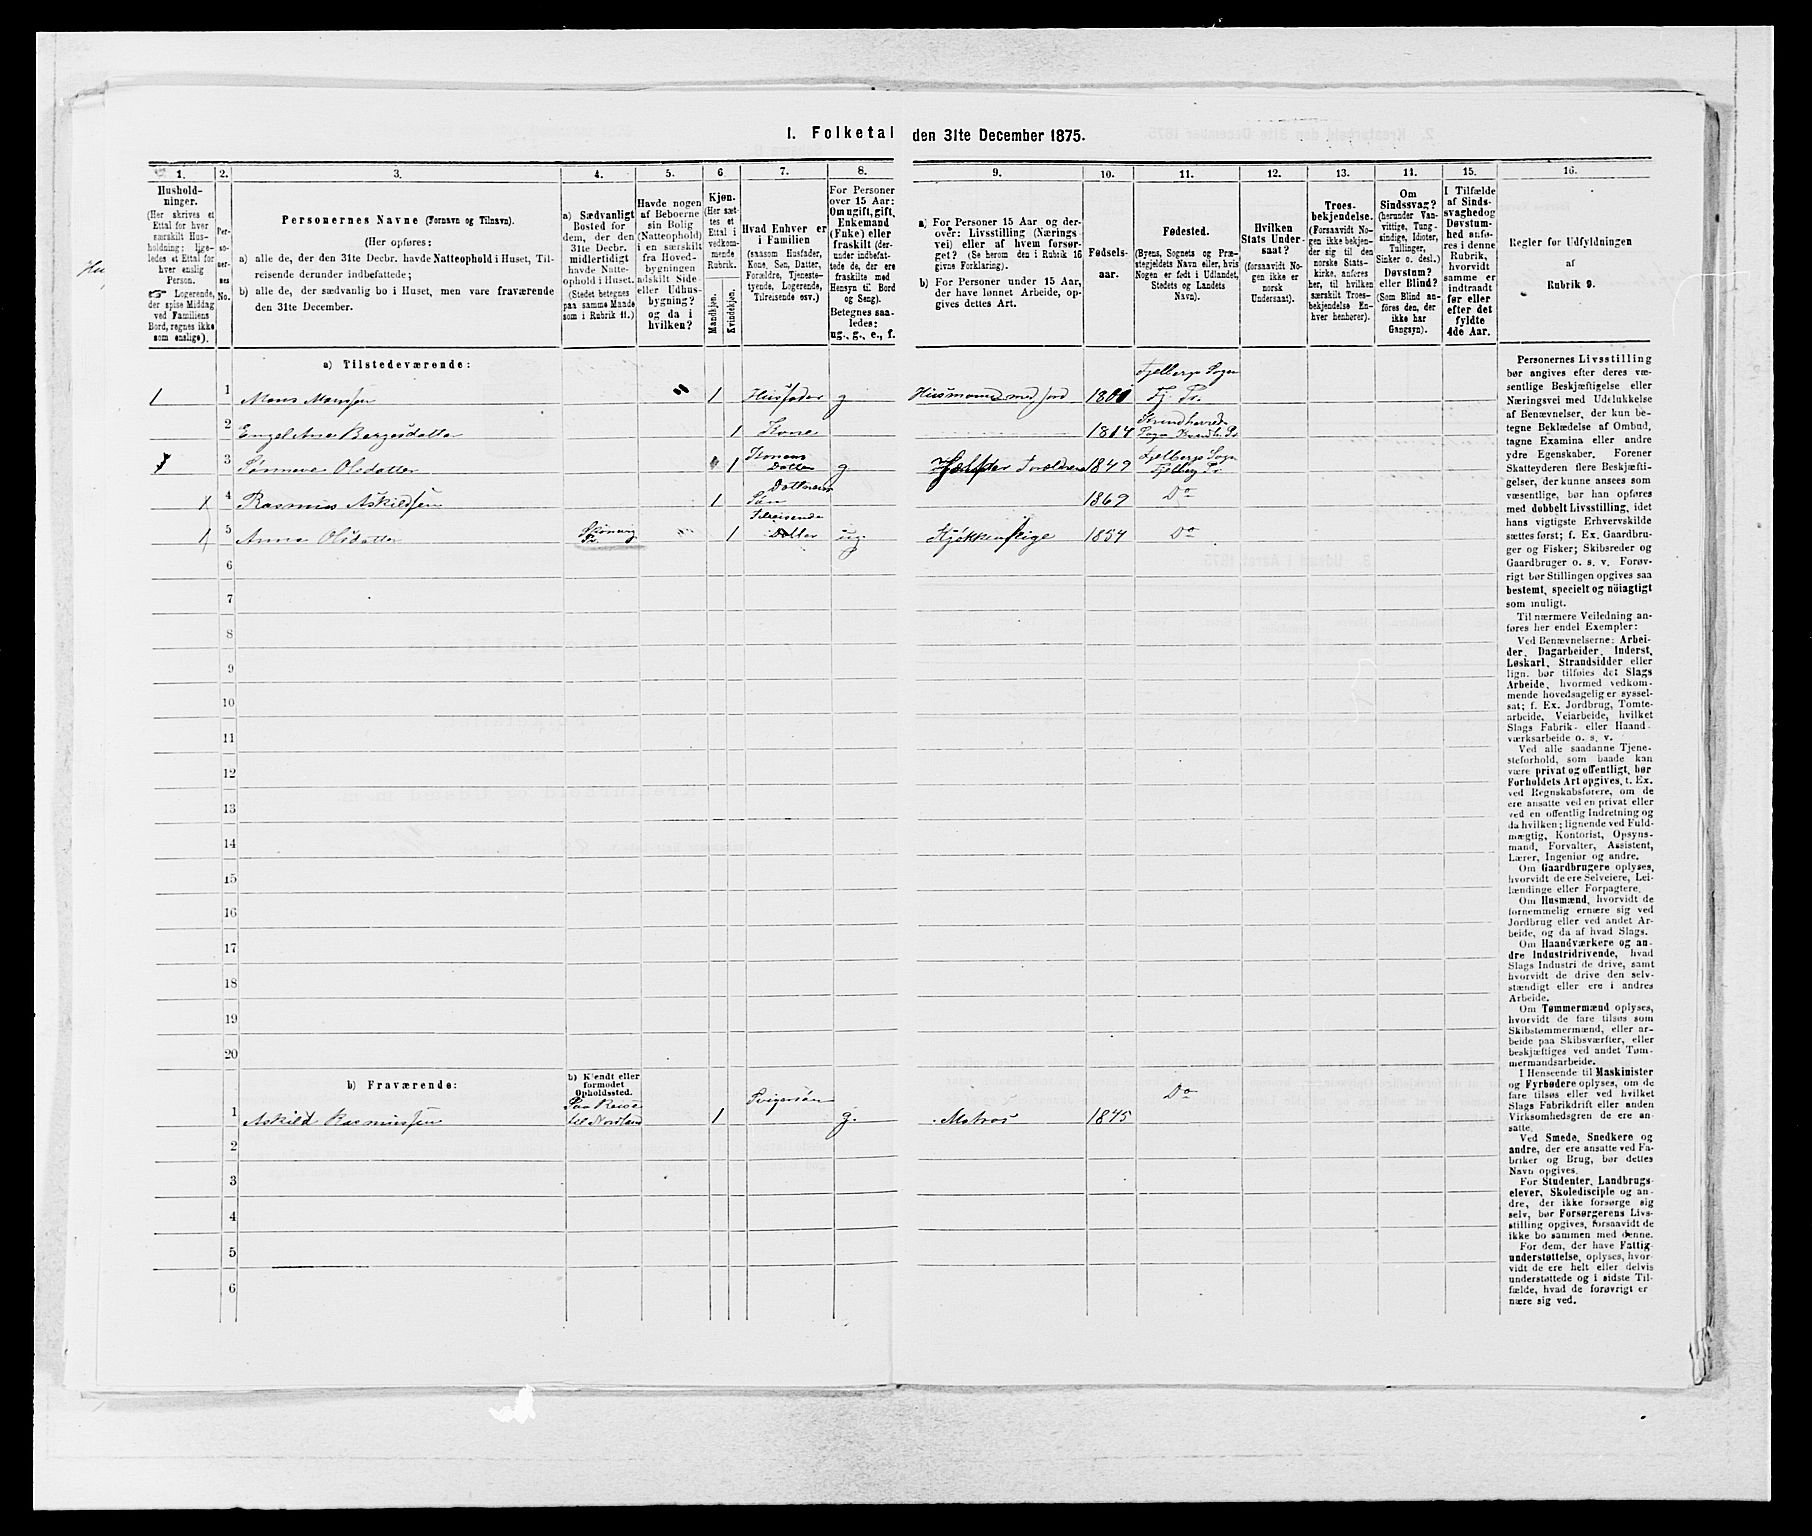 1. Folketal den 31te December 1875.
1. 2. 3. 4. 5. 6. 7. 8. 9. 10. 11. 12. 13. 14. 15. 16.
Hushold-
ninger.
(Her skrives et
Ettal for hver
særskilt Hus-
holdning; lige-
ledes et Ettal for
hver enslig
Person.
☞ Logerende,
der spise Middag
ved Familiens
Bord, regnes ikke
som enslige).
Per-
so-
ner-
nes
No.
Personernes Navne (Fornavn og Tilnavn).
(Her opføres:
a) alle de, der den 31te Decbr. havde Natteophold i Huset, Til-
reisende derunder indbefattede;
b) alle de, der sædvanlig bo i Huset, men vare fraværende
den 31te December.
a) Sædvanligt
Bosted for
dem, der den
31te Decbr.
midlertidigt
havde Natte-
ophold i Huset.
(Stedet betegnes
paa samme Maade
som i Rubrik 11.)
Havde nogen
af Beboerne
sin Bolig
(Natteophold)
i en særskilt
fra Hoved-
bygningen
adskilt Side
eller Udhus-
bygning?
og da i
hvilken?
Kjøn.
(Her sæt-
tes et
Ettal i
vedkom-
mende
Rubrik.
Mandkjøn.
Kvindekjøn.
Hvad Enhver er
i Familien
(saasom Husfader,
Kone, Søn, Datter,
Forældre, Tjeneste-
tyende, Logerende,
Tilreisende osv.)
For Personer
over 15 Aar:
Om ugift, gift,
Enkemand
(Enke) eller
fraskilt (der-
under indbefat-
tede de, der ere
fraskilte med
Hensyn til Bord
og Seng).
Betegnes saa-
ledes:
ug., g., e., f.
a) For Personer 15 Aar og der-
over: Livsstilling (Nærings-
vei) eller af hvem forsør-
get? (Se herom den i Rubrik 16
givne Forklaring).
b) For Personer under 15 Aar,
der have lønnet Arbeide, op-
gives dettes Art.
Fødsels-
aar.
Fødested.
(Byens, Sognets og Præ-
stegjeldets Navn eller, hvis
Nogen er født i Udlandet,
Stedets og Landets
Navn).
Hvilken
Stats Under-
saat?
(forsaavidt No-
gen ikke er
norsk
Undersaat).
Troes-
bekjendelse.
(Forsaavidt No-
gen ikke bekjen-
der sig til den
norske Stats-
kirke, anføres
her, til hvilken
særskilt Troes-
bekjendelse En-
hver henhører).
Om
Sindssvag?
(herunder Van-
vittige, Tung-
sindige, Idioter,
Tullinger,
Sinker o. desl.)
Døvstum?
eller Blind?
(Som Blind an-
føres den, der
ikke har
Gangsyn).
I Tilfælde
af Sinds-
svaghed og
Døvstum-
hed anfø-
res i denne
Rubrik,
hvorvidt
samme er
indtraadt
før eller
efter det
fyldte
4de Aar.
Regler for Udfyldningen
af
Rubrik 9.
a) Tilstedeværende:
Fjelbergs Sogn
1 1 Mons Monssen " 1 Husfader g Husmand med Jord 1801 Fj. Pr.
2 Engel Ane Bergesdatter 1 Kone 1814
3 Sønneve Olsdatter 1 Konens Datter g 1849 Fjelbergs Sogn Fjelberg Pr.
1 4 Rasmus Askildsen 1 Dattrens Søn 1869 Do
1 5 Anna Olsdatter 1 Tilreisende Datter ug Kjøkkenpige 1854 Do
6
7
8
9
10
11
12
13
14
15
16
17
18
19
20
b) Fraværende:
b) Kjendt eller
formodet
Opholdssted.
1 Askild Rasmussen Paa Reise til Nordland 1 Svigersøn g. Matros 1845 Do
2
3
4
5
6
Personernes Livsstilling
bør angives efter deres væ-
sentlige Beskjæftigelse eller
Næringsvei med Udelukkelse
af Benævnelser, der kun be-
tegne Beklædelse af Ombud,
tagne Examina eller andre
ydre Egenskaber. Forener
Skatteyderen flere Beskjæfti-
gelser, der kunne ansees som
væsentlige, bør han opføres
med dobbelt Livsstilling, idet
hans vigtigste Erhvervskilde
sættes først; f. Ex. Gaardbru-
ger og Fisker; Skibsreder og
Gaardbruger o. s. v. Forøv-
rigt bør Stillingen opgives saa
bestemt, specielt og nöiagtigt
som muligt.
Til nærmere Veiledning an-
føres her endel Exempler:
Ved Benævnelserne: Arbei-
der, Dagarbeider, Inderst,
Løskarl, Strandsidder eller
lign. bør tilføies det Slags
Arbeide, hvormed vedkom-
mende hovedsagelig er syssel-
sat; f. Ex. Jordbrug, Tomte-
arbeide, Veiarbeide, hvilket
Slags Fabrik- eller Haand-
værksarbeide o. s. v.
Ved alle saadanne Tjene-
steforhold, som baade kan
være privat og offentligt, bør
Forholdets Art opgives, t. Ex.
ved Regnskabsførere, om de
ere ansatte ved en privat eller
ved en offentlig Indretning og
da hvilken; lignende ved Fuld-
mægtig, Kontorist, Opsyns-
mand, Forvalter, Assistent,
Lærer, Ingeniør og andre.
Om Gaardbrugere oplyses,
hvorvidt de ere Selveiere, Lei-
lændinge eller Forpagtere.
Om Husmænd, hvorvidt de
fornemmelig ernære sig ved
Jordbrug eller ved andet Ar-
beide, og da af hvad Slags.
Om Haandværkere og an-
dre Industridrivende, hvad
Slags Industri de drive, samt
hvorvidt de drive den selv-
stændigt eller ere i andres
Arbeide.
Om Tømmermænd oplyses,
hvorvidt de fare tilsøs som
Skibstømmermænd, eller ar-
beide paa Skibsværfter, eller
beskjæftiges ved andet Tøm-
mermandsarbeide.
I Henseende til Maskinister
og Fyrbødere oplyses, om de
fare tilsøs eller ved hvilket
Slags Fabrikdrift eller anden
Virksomhedsgren de ere an-
satte.
Ved Smede, Snedkere og
andre, der ere ansatte ved Fa-
briker og Brug, bør dettes
Navn opgives.
For Studenter, Landbrugs-
elever, Skoledisciple og an-
dre, der ikke forsørge sig
selv, bør Forsørgerens Livs-
stilling opgives, forsaavidt de
ikke bo sammen med denne.
For dem, der have Fattig-
understøttelse, oplyses, hvor-
vidt de ere helt eller delvis
understøttede og i sidste Til-
fælde, hvad de forøvrigt er-
nære sig ved.